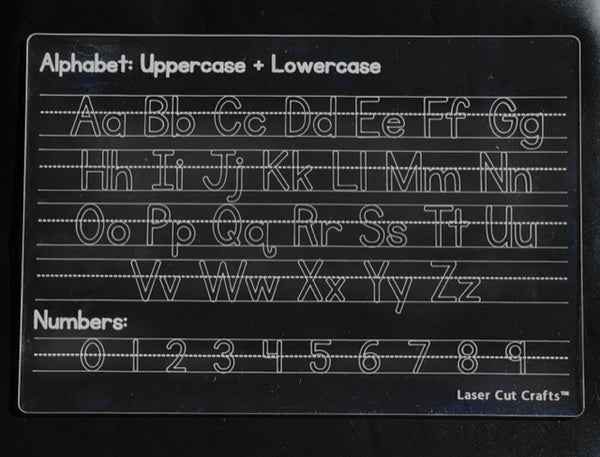 Alphabet: Uppercase + Lowercase
Aa Bb Cc Dd Ee Ff Gg
Hh Ii Jj Kk Ll Mm Nn
Oo Pp Qq Rr Ss Tt Uu
Vv Ww Xx Yy Zz
Numbers:
0 1 2 3 4 5 6 7 8 9
Laser Cut Crafts™